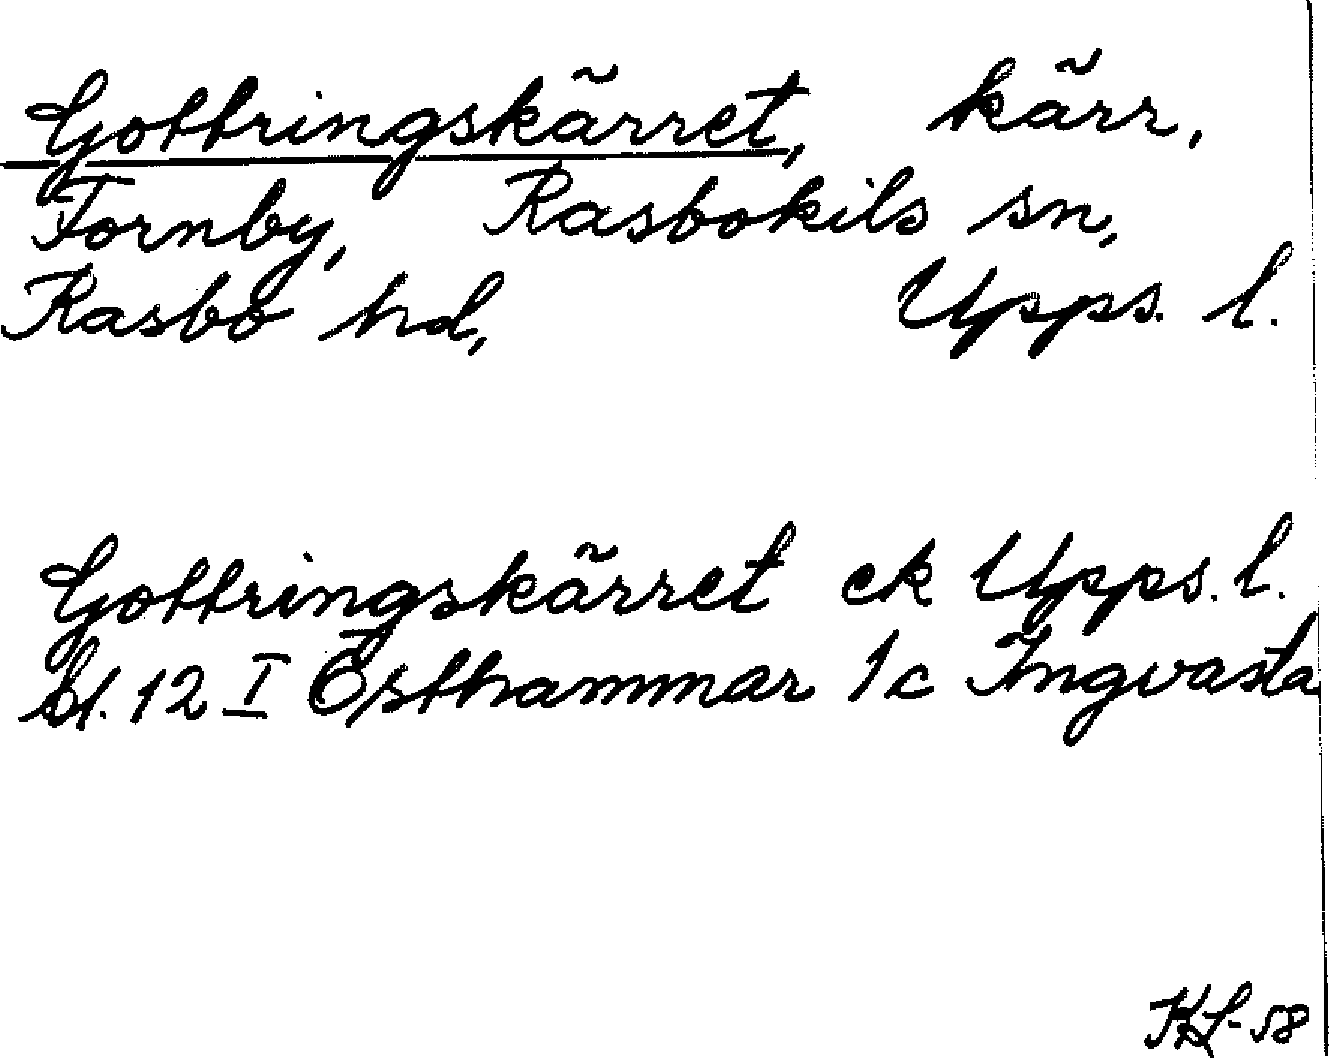 Gottringskärret, kärr,
Fornby, Rasbokils sn,
Rasbo hd, Upps. l.
Gottringskärret ek Upps. l.
bl. 12 I Östhammar 1c Ingvasta